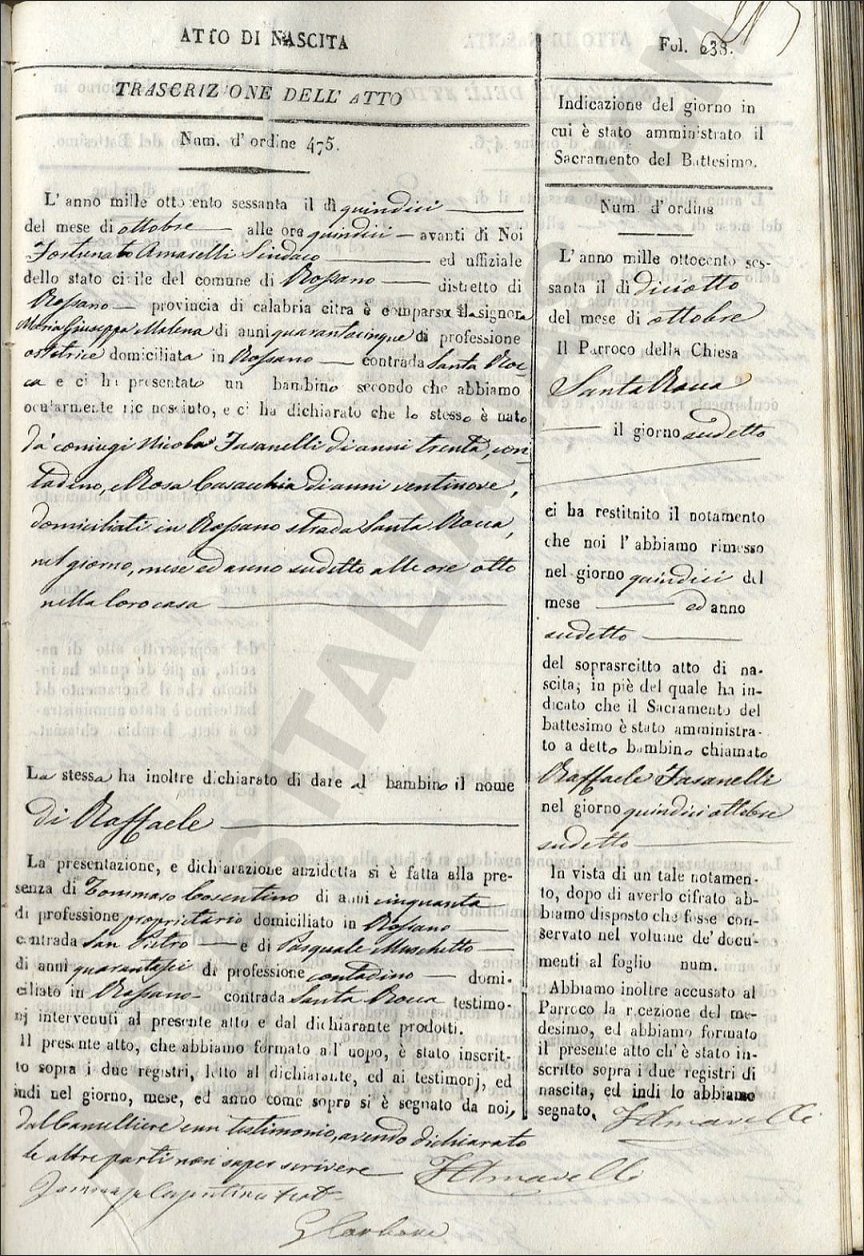 ATTO DI NASCITA
TRASCRIZIONE DELL'ATTO
Num. d'ordine 475.
L'anno mille ottocento sessanta il dì quindici
del mese di ottobre alle ore quindici avanti di Noi
Fortunato Amarelli Sindaco ed uffiziale
dello stato civile del comune di Rossano distretto di
Rossano provincia di calabria citra è comparsa la signora
Maria Giuseppa Malena di anni quarantacinque di professione
ostetrice domiciliata in Rossano contrada Santa Roc-
ca e ci ha presentato un bambino secondo che abbiamo
ocularmente riconosciuto, e ci ha dichiarato che lo stesso è nato
da' coniugi Nicola Fasanelli di anni trenta, con
tadino, e Rosa Casacchia di anni ventinove,
domiciliati in Rossano strada Santa Rocca,
nel giorno, mese ed anno sudetto alle ore otto
nella loro casa
La stessa ha inoltre dichiarato di dare al bambino il nome
di Raffaele
La presentazione, e dichiarazione anzidetta si è fatta alla pre-
senza di Tommaso Cosentino di anni cinquanta
di professione proprietario domiciliato in Rossano
contrada San Pietro e di Pasquale Muschetto
di anni quarantasei di professione contadino domi-
ciliato in Rossano contrada Santa Rocca testimo-
nj intervenuti al presente atto e dal dichiarante prodotti.
Il presente atto, che abbiamo formato all'uopo, è stato inscrit-
to sopra i due registri, letto al dichiarante, ed ai testimonj, ed
indi nel giorno, mese, ed anno come sopra si è segnato da noi,
dal Cancelliere e un testimonio, avendo dichiarato
le altre parti non saper scrivere FAmarelli
Fol. 238.
Indicazione del giorno in
cui è stato amministrato il
Sacramento del Battesimo.
Num. d'ordine
L'anno mille ottocento ses-
santa il dì Diciotto
del mese di ottobre
Il Parroco della Chiesa
Santa Rocca
il giorno sudetto
ci ha restituito il notamento
che noi l'abbiamo rimesso
nel giorno quindici del
mese ed anno
sudetto
del soprasrcitto atto di na-
scita; in piè del quale ha in-
dicato che il Sacramento del
battesimo è stato amministra-
to a detto bambino chiamato
Raffaele Fasanelli
nel giorno quindici ottobre
sudetto
In vista di un tale notamen-
to, dopo di averlo cifrato ab-
biamo disposto che fosse con-
servato nel volume de' docu-
menti al foglio num.
Abbiamo inoltre accusato al
Parroco la ricezione del me-
desimo, ed abbiamo formato
il presente atto ch'è stato in-
scritto sopra i due registri di
nascita, ed indi lo abbiamo
segnato. FAmarelli